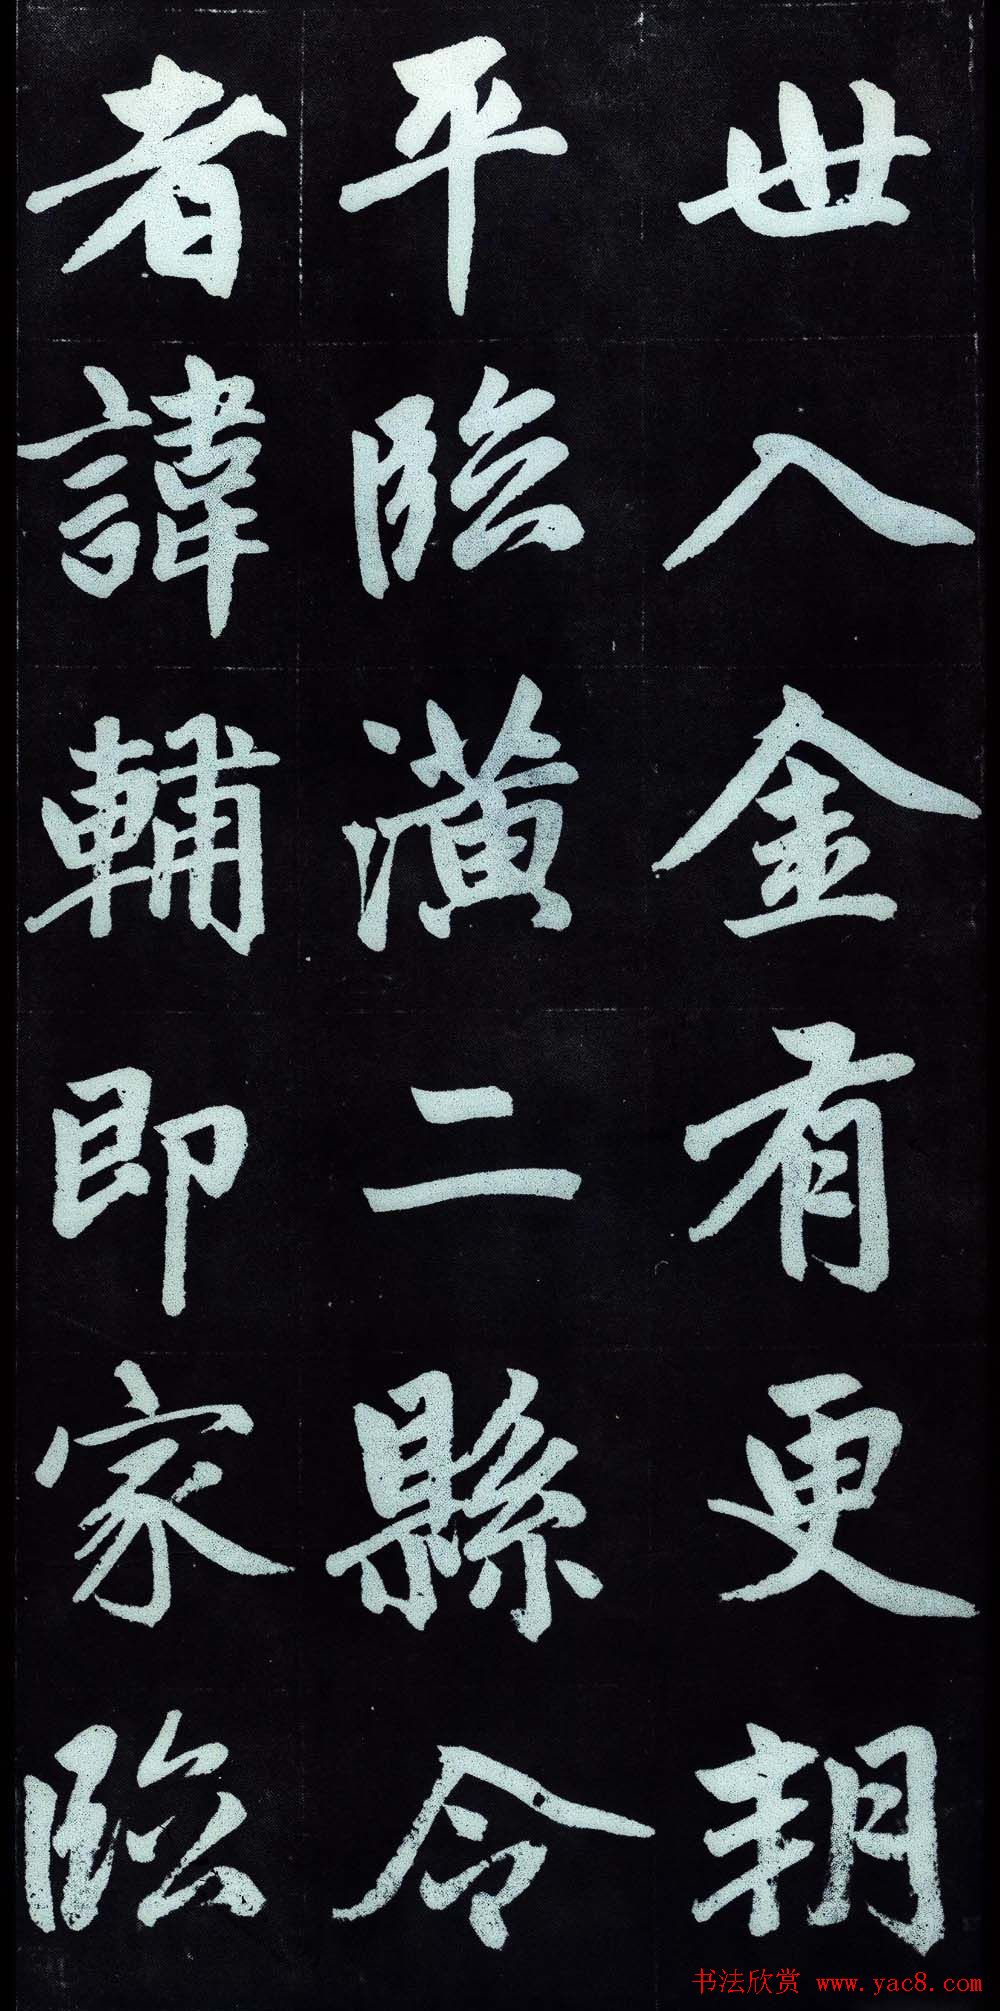 世入金有更朔
平臨潢二縣令
者諱輔即家臨
书法欣赏 www.yac8.com